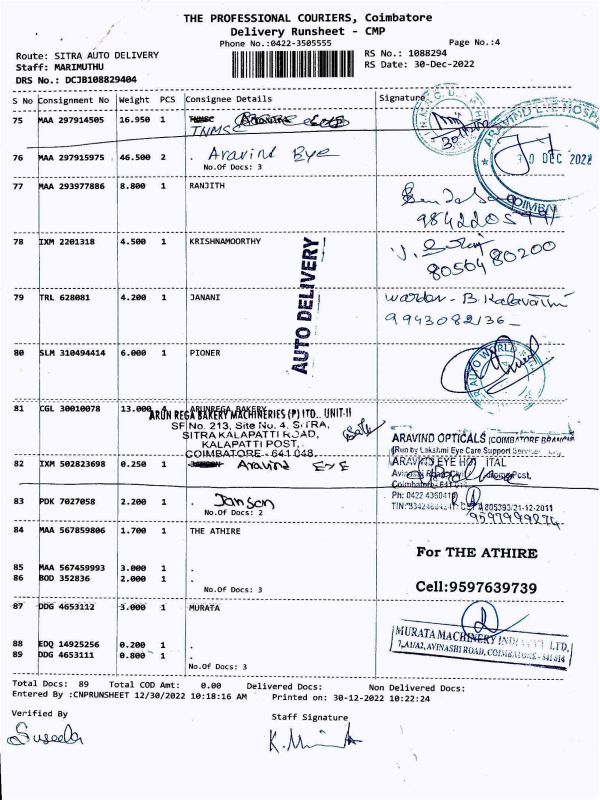 THE PROFESSIONAL COURIERS, Coimbatore
Delivery Runsheet - CMP
Phone No.:0422-3505555
Page No.:4
Route: SITRA AUTO DELIVERY
RS No.: 1088294
Staff: MARIMUTHU
RS Date: 30-Dec-2022
DRS No.: DCJB108829404
S No Consignment No Weight PCS Consignee Details Signature
75 MAA 297914505 16.950 1
TNMSC
76 MAA 297915975 46.500 2 . Aravind Eye
No.Of Docs: 3
30 DEC 2022
77 MAA 293977886 8.800 1 RANJITH
78 IXM 2201318 4.500 1 KRISHNAMOORTHY
8056480200
AUTO DELIVERY
79 TRL 628081 4.200 1 JANANI
warden - B. Kalavathi
9943082136
80 SLM 310494414 6.000 1 PIONER
AUTO WORLD
81 CGL 30010078 13.000 4 ARUNREGA BAKERY
ARUN REGA BAKERY MACHINERIES (P) LTD., UNIT-II
SF No. 213, Site No. 4, SITRA,
SITRA KALAPATTI ROAD,
KALAPATTI POST,
COIMBATORE - 641 048.
ARAVIND OPTICALS (COIMBATORE BRANCH)
(Run by Lakshmi Eye Care Support Services
82 IXM 502823698 0.250 1 Aravind Eye
ARAVIND EYE HOSPITAL
83 PDK 7027058 2.200 1 . Jamson
No.Of Docs: 2
Ph: 0422 4350410
9597999874
84 MAA 567859806 1.700 1 THE ATHIRE
For THE ATHIRE
85 MAA 567459993 3.000 1 .
86 BOD 352836 2.000 1 .
No.Of Docs: 3
Cell:9597639739
87 DDG 4653112 3.000 1 MURATA
MURATA MACHINERY INDIA PVT. LTD.
7,A1/A2, AVINASHI ROAD, COIMBATORE - 641 014
88 EDQ 14925256 0.200 1 .
89 DDG 4653111 0.800 1 .
No.Of Docs: 3
Total Docs: 89 Total COD Amt: 0.00 Delivered Docs: Non Delivered Docs:
Entered By :CNPRUNSHEET 12/30/2022 10:18:16 AM Printed on: 30-12-2022 10:22:24
Verified By
Staff Signature
Suseela